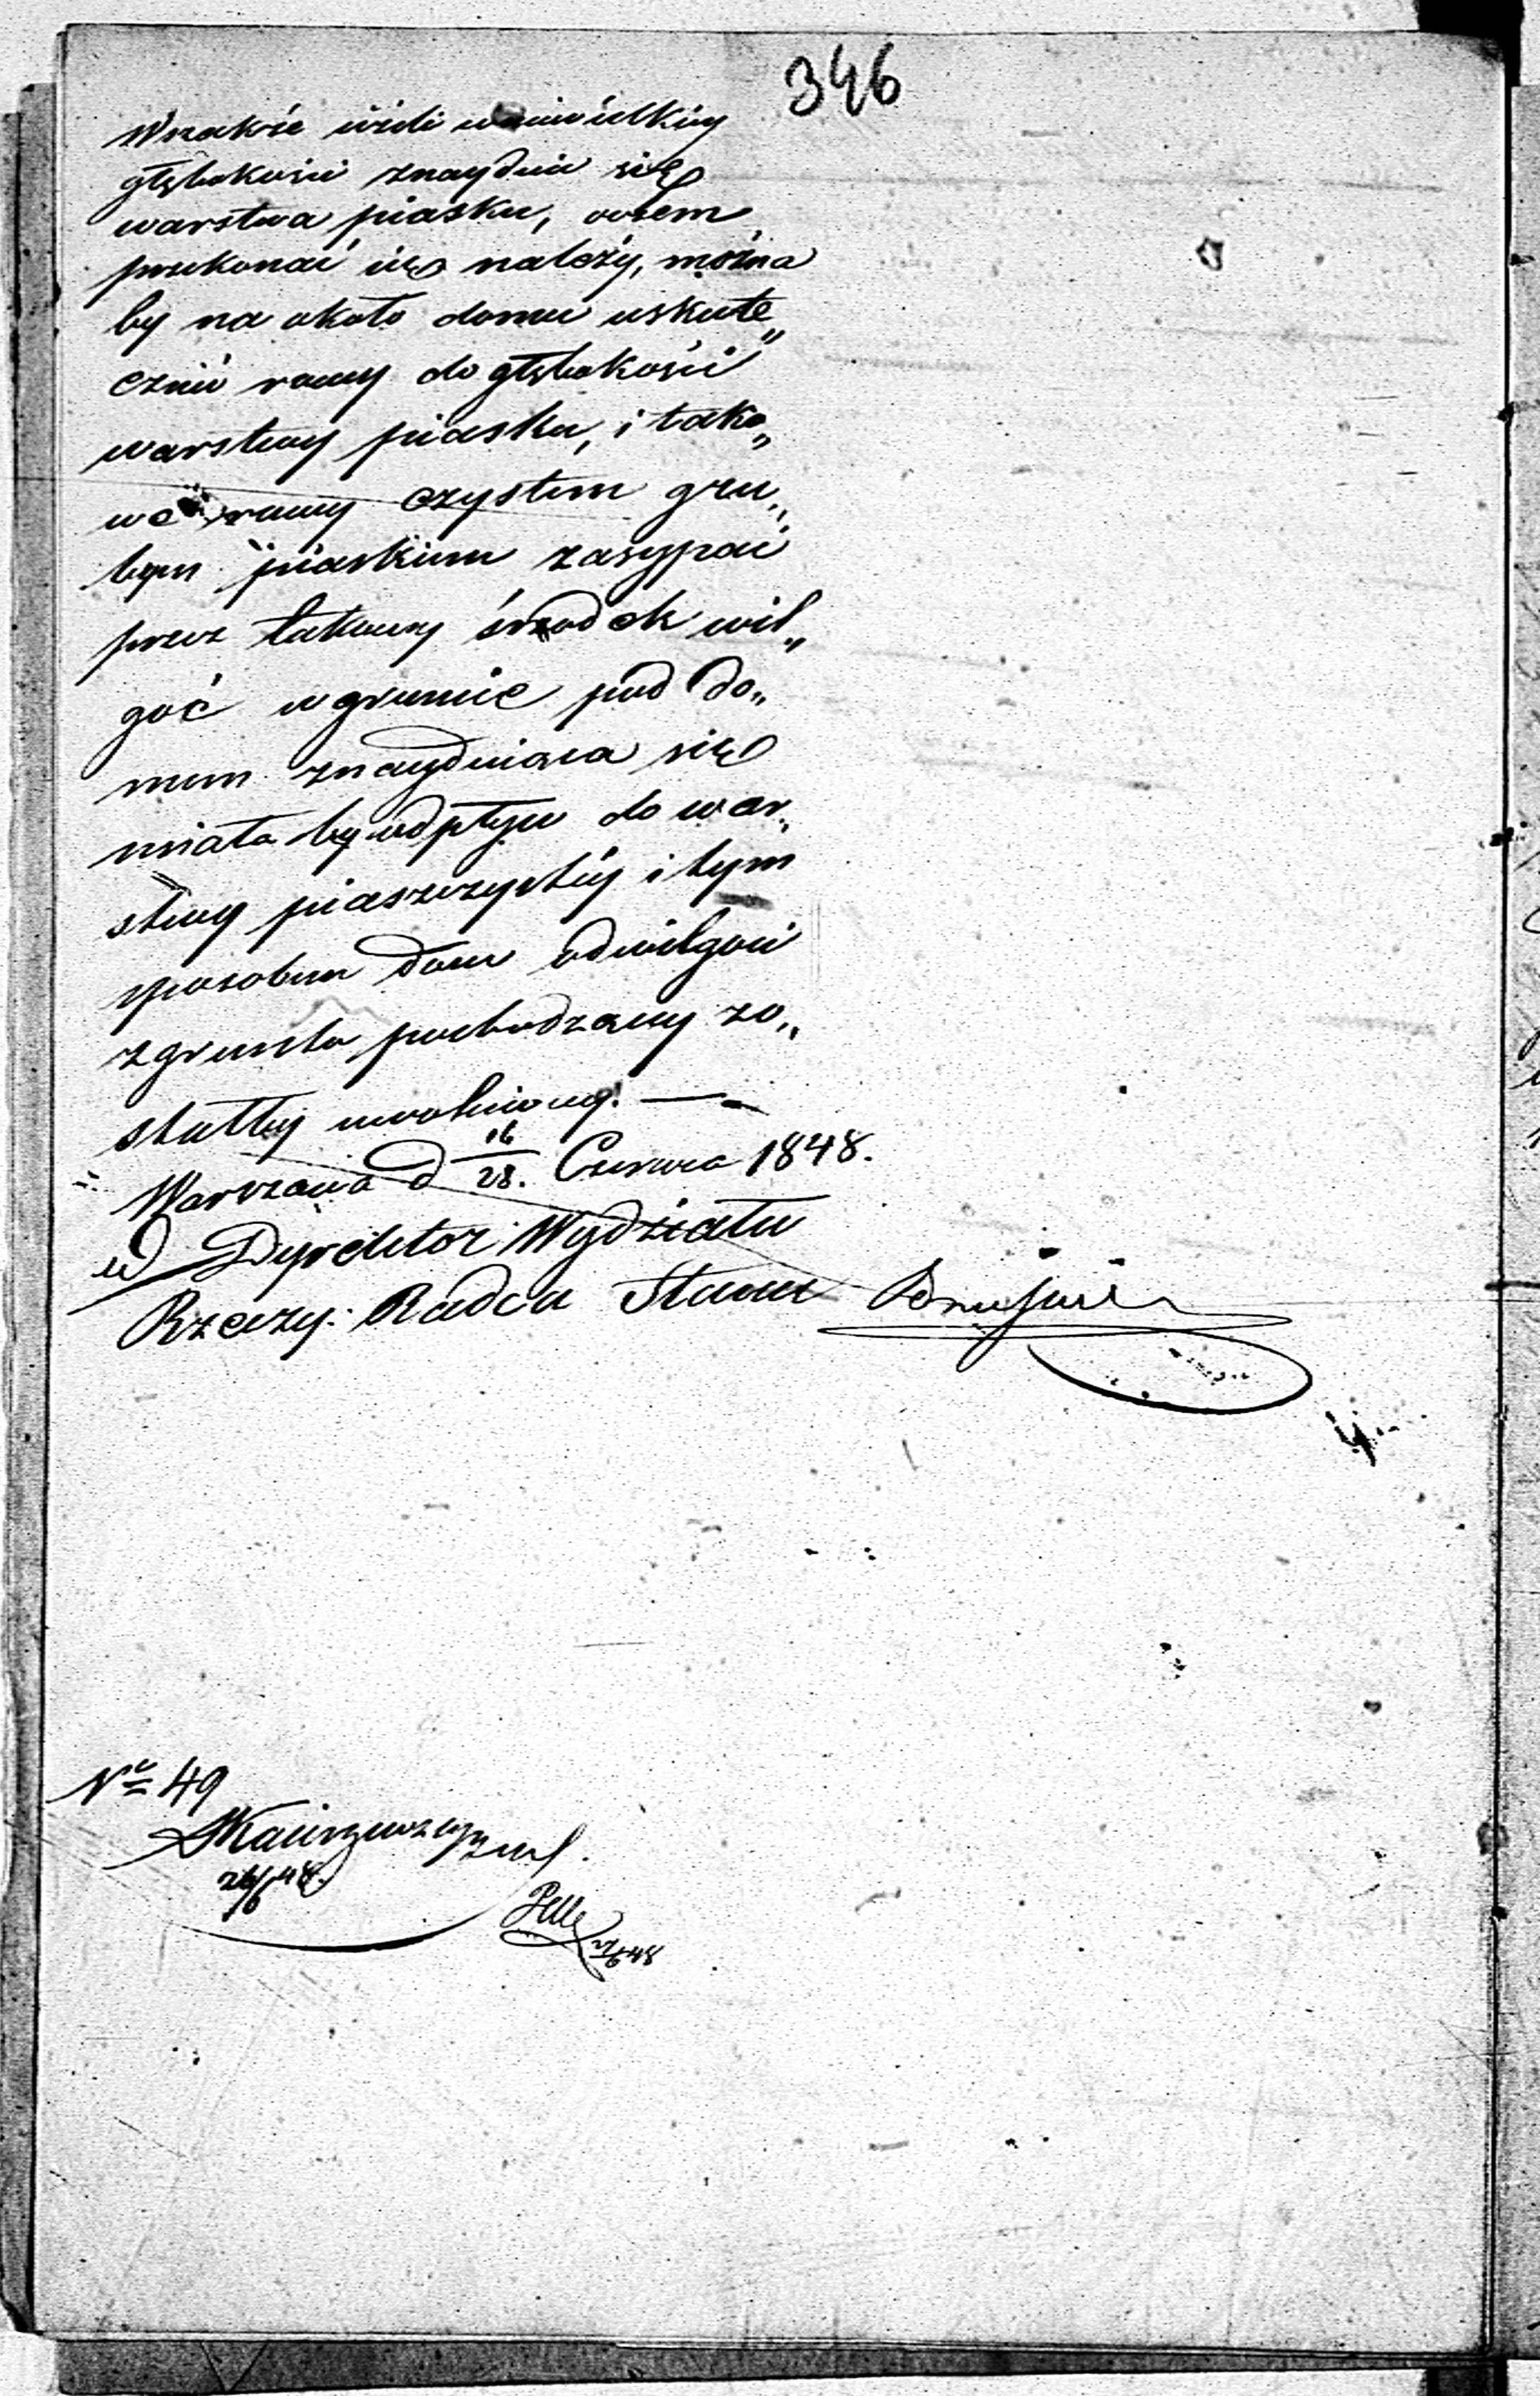 346
Wszakże jeżeli w niewielkiéy
głębokości znayduie się
warstwa piasku, oczem
przekonać się należy, można
by na około domu uskute„
cznić rowy do głębokości
warstwy piasku, i tako„
we rowy czystem gru„
bym piaskiem zasypać
przez takowy środek wil„
goć w gruncie pod do„
mem znayduiąca się
miała by odpływ do war„
stwy piaszczystéy i tym
sposobem dom od wilgoci
z gruntu pochodzącey zo„
stałby uwolniony. —
Warszawa d 16/28. Czerwca 1848.
Dyrektor Wydziału
Rzeczy: Radca Stanu
No 49
26/6 48.